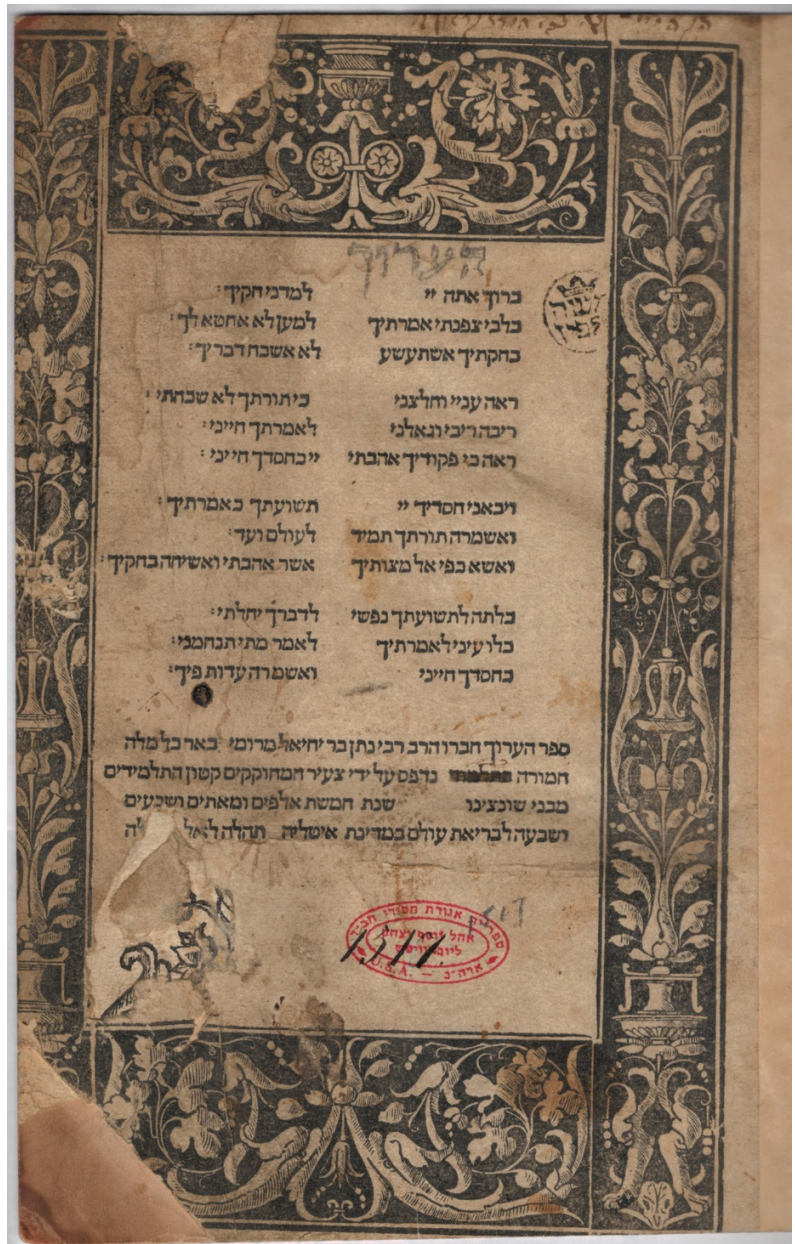 הערוך
ברוך אתה יי למדני חקיך:
בלבי צפנתי אמרתיך למען לא אחטא לך:
בחקתיך אשתעשע לא אשכח דבריך:
ראה עניי וחלצני כי תורתך לא שכחתי:
ריבה ריבי וגאלני לאמרתך חייני:
ראה כי פקודיך אהבתי יי כחסדך חייני:
ויבאני חסדיך יי תשועתך כאמרתיך:
ואשמרה תורתך תמיד לעולם ועד:
ואשא כפי אל מצותיך אשר אהבתי ואשיחה בחקיך:
כלתה לתשועתך נפשי לדברך יחלתי:
כלו עיני לאמרתיך לאמר מתי תנחמני:
כחסדך חייני ואשמרה עדות פיך:
ספר הערוך חברו הרב רבי נתן בר יחיאל מרומי באר כל מלה
חמורה נדפס על ידי צעיר המחוקקים קטון התלמידים
מבני שונצינו שנת חמשת אלפים ומאתים ושבעים
ושבעה לבריאת עולם במדינת איטליה תהלה לאל
ספריית אגודת חסידי חב"ד
אהל יוסף יצחק
ליובאוויטש
ארה"ב — U.S.A.
1511.